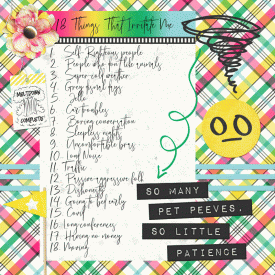 18 Things That Irritate Me
1. Self-Righteous people
2. People who don't like animals
3. Super-cold weather
4. Grey dismal days
5. Jello
6. Car troubles
7. Boring conversation
8. Sleepless nights
9. Uncomfortable bras
10. Loud Noise
11. Traffic
12. Passive-aggressive folk
13. Dishonesty
14. Going to bed early
15. Cancel
16. Long conferences
17. Having no money
18. Moving
MELTDOWN
COMPLETE
SO MANY
PET PEEVES,
SO LITTLE
PATIENCE